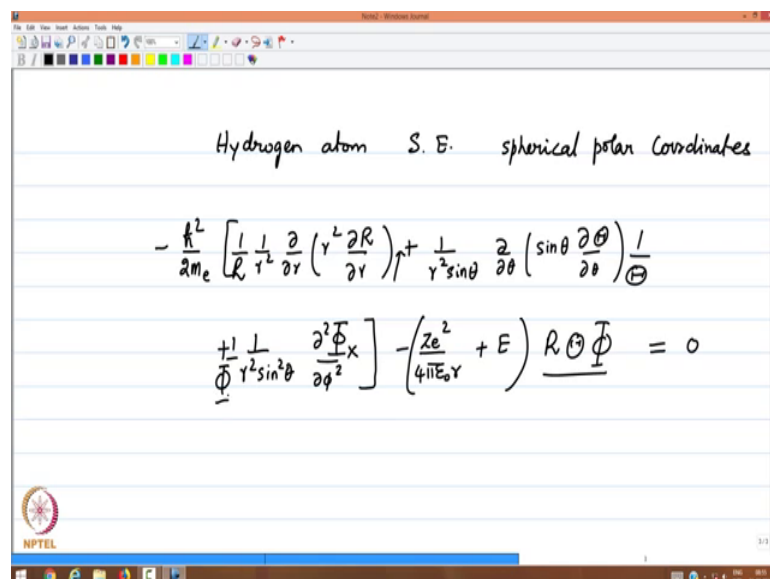 Note2 - Windows Journal
File Edit View Insert Actions Tools Help
B I
Hydrogen atom S. E. spherical polar coordinates
- ħ²/2mₑ [1/R 1/r² ∂/∂r (r² ∂R/∂r) + 1/(r² sinθ) ∂/∂θ (sinθ ∂Θ/∂θ) 1/Θ
+ 1/Φ 1/(r² sin²θ) ∂²Φ/∂φ² x ] - (Ze²/4πε₀r + E) R Θ Φ = 0
NPTEL
3/3
3
ENG